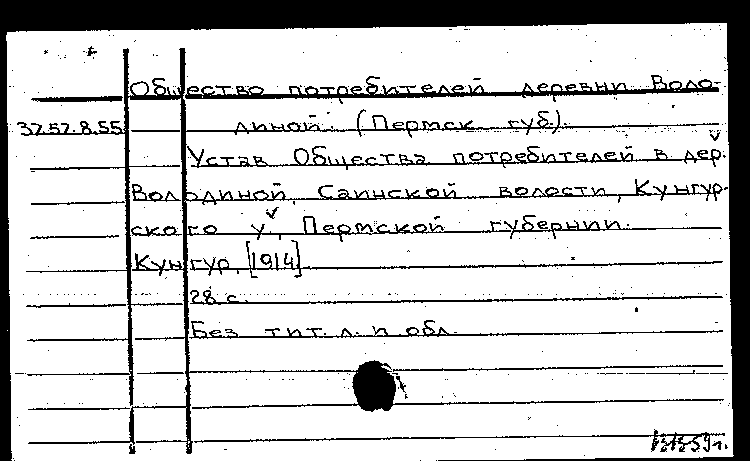 Общество потребителей деревни Воло-
37.57.8.55 диной. (Пермск. губ.).
Устав Общества потребителей в дер.
Володиной, Саинской волости, Кунгур-
ского у., Пермской губернии.
Кунгур, [1914]
28 с.
Без тит. л. и обл.